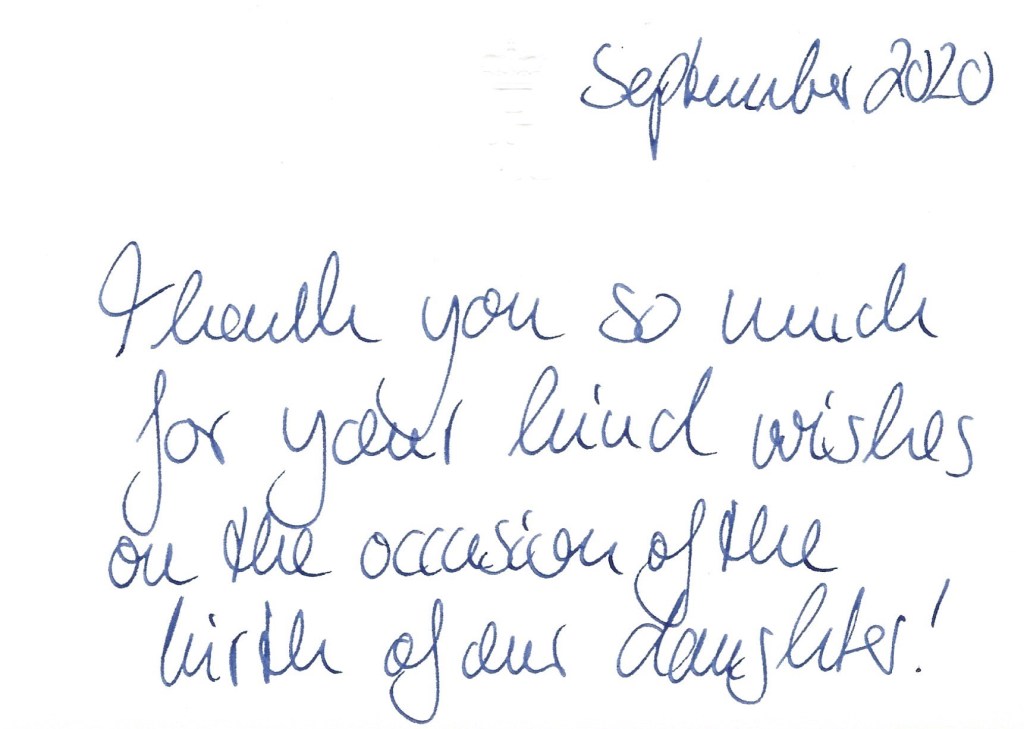 September 2020
Thank you so much
for your kind wishes
on the occasion of the
birth of our daughter!